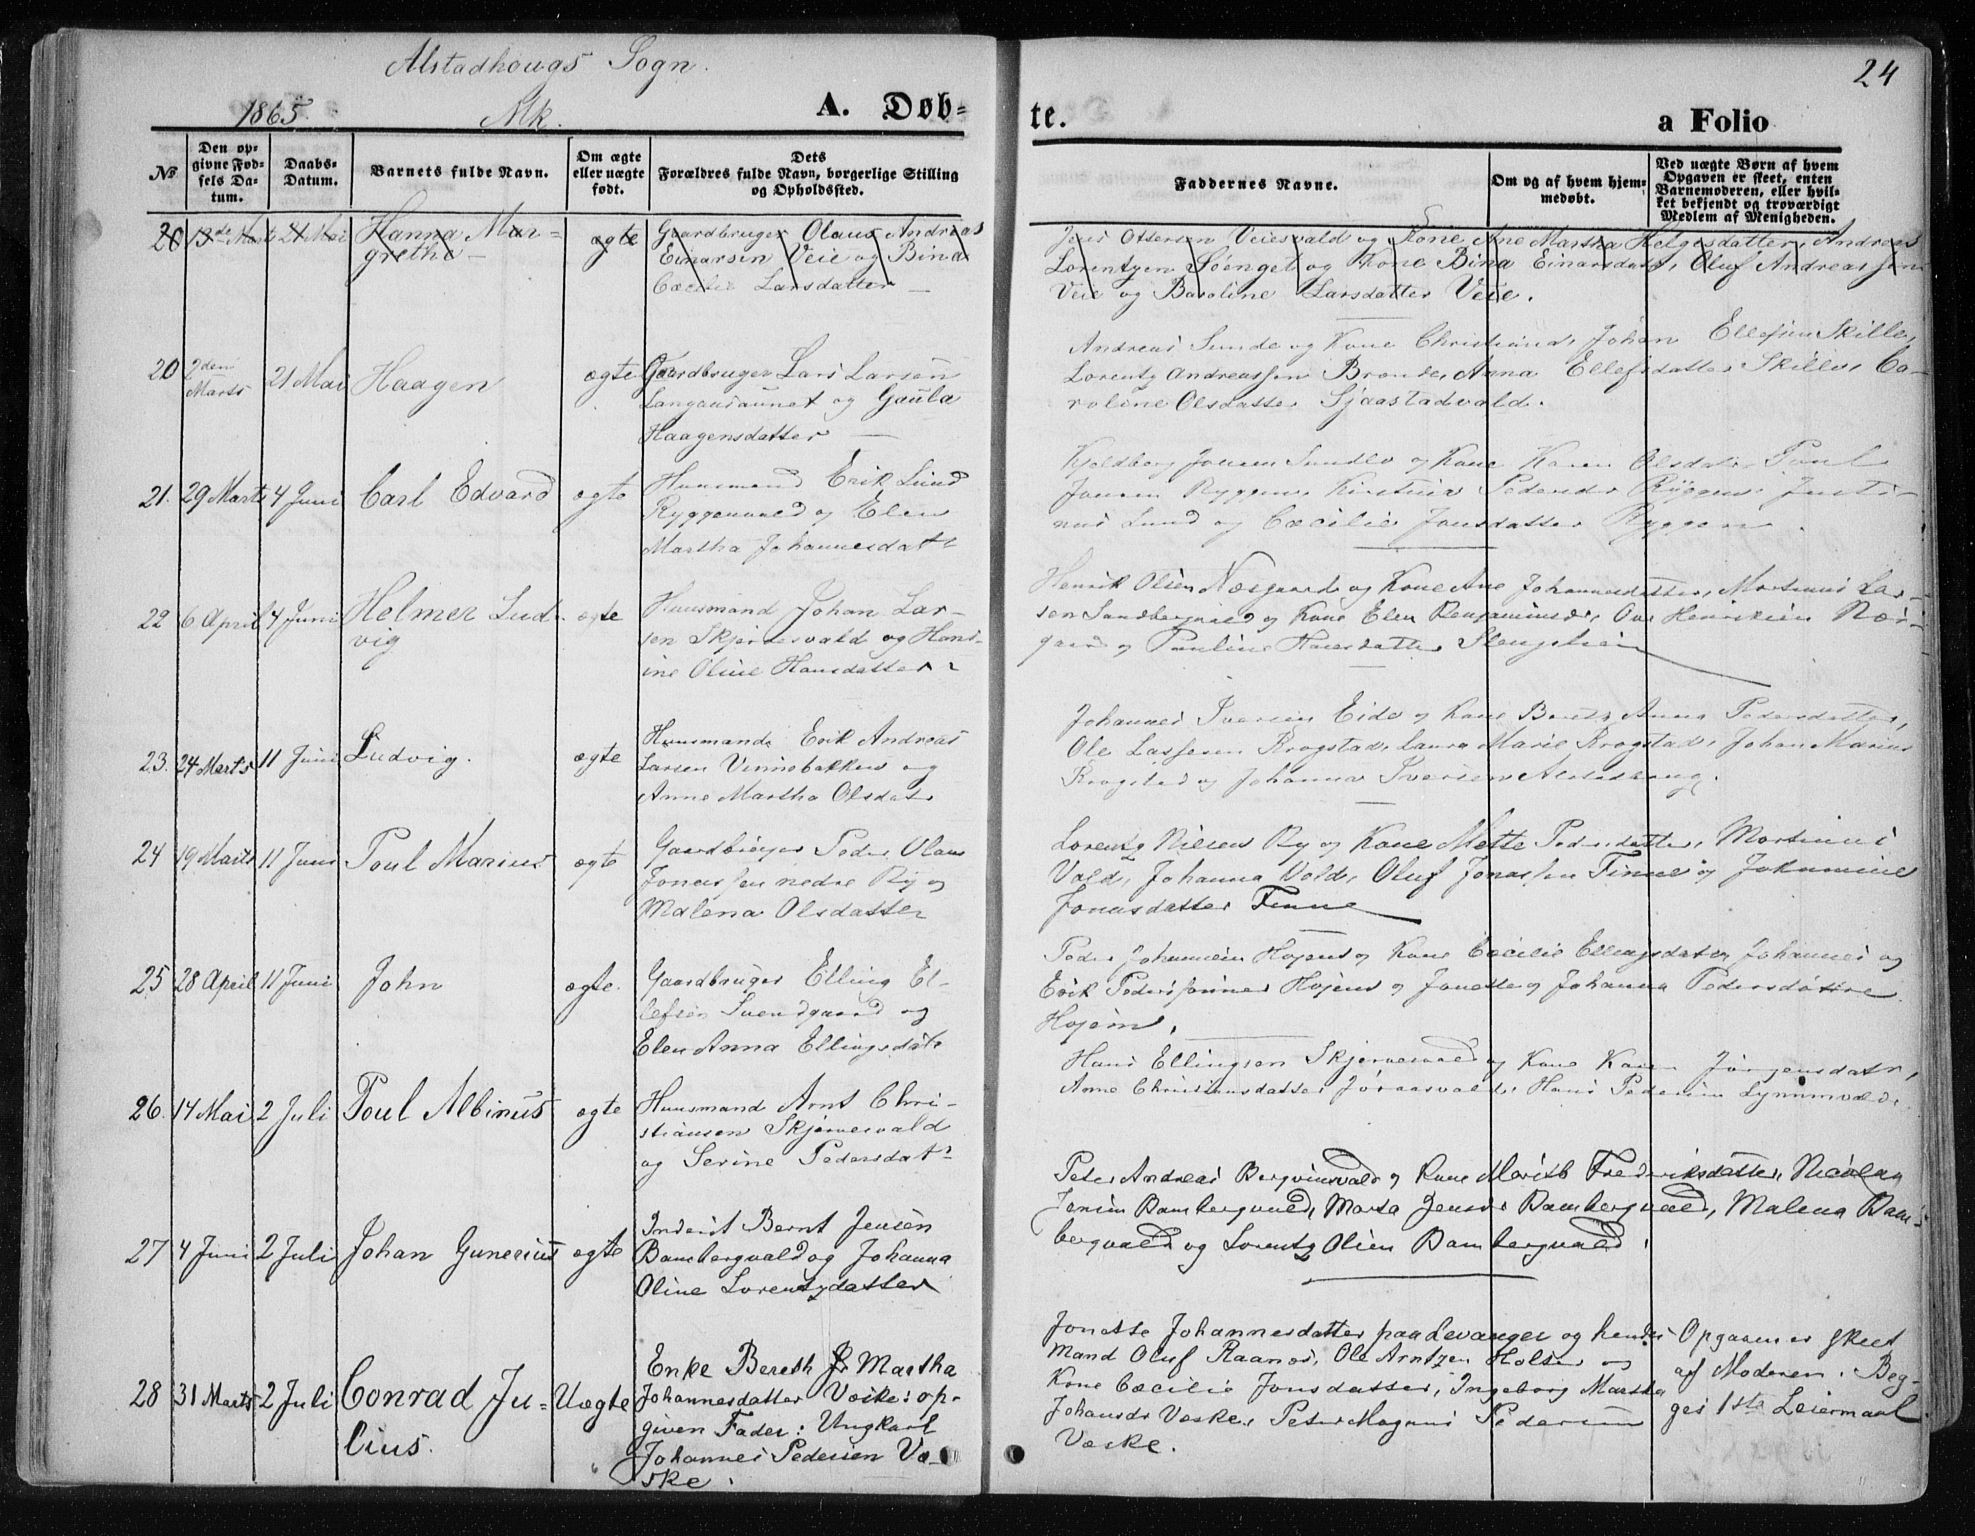 Alstadhougs Sogn.
24
1865.
Mk.
A. Døb-
te.
a Folio
No
Den op-
givne Fød-
sels Da-
tum.
Daabs-
Datum.
Barnets fulde Navn.
Om ægte
eller uægte
født.
Dets
Forældres fulde Navn, borgerlige Stilling
og Opholdssted.
Faddernes Navne.
Om og af hvem hjem-
medøbt.
Ved uægte Børn af hvem
Opgaven er skeet, enten
Barnemoderen, eller hvil-
ket bekjendt og troværdigt
Medlem af Menigheden.
20 13de Marts 21 Mai Hanna Mar-
grethe
ægte
Gaardbruger Olaus Andreas
Einarsen Veie og Bina
Cæcilie Larsdatter
Jens Ottersen Veiesvald og Kone Ane Martha Helgesdatter, Andreas
Lorentzen Søenget og Kone Bina Einarsdatr, Oluf Andreassen
Veie og Baroline Larsdatter Veie.
20 2den
Marts
21 Mai Haagen ægte
Gaardbruger Lars Larsen
Langaasaunet og Gaula
Haagensdatter
Andreas Sunde og Kone Christiana, Johan Ellefsen Skille,
Lorentz Andreassen Brende, Anna Ellefsdatter Skille, Ca-
roline Olsdatter Sjaastadvald.
21. 29 Marts 4 Juni Carl Edvard ægte
Huusmand Erik Lund
Ryggenvald og Elen
Martha Johannesdatr
Jonsen Ryggen, Kirstina Pedersdr Ryggen, Justi-
nus Lund og Cæcilie Jonsdatter Ryggen.
22 6 April 4 Juni Helmer Lud-
vig
ægte
Huusmand Johan Lar-
sen Skjervesvald og Hans-
ine Oline Hansdatter
Henrik Olsen Næsgaard og Kone Ane Johannesdatter, Martinus Lar-
sen Sundbergvald og Kone Elen Benjaminsdr, Ove Henriksen Næs-
gaard og Pauline Hansdatter
23. 24 Marts 11 Juni Ludvig. ægte
Huusmand Erik Andreas
Larsen Vinnebakken og
Anne Martha Olsdatr
Johannes Iversen Eide og Kone Bereth Anna Pedersdatter,
Ole Lassesen Krogstad, Laura Marie Krogstad, Johan Marius
Krogstad og Johanna Iversen Alstadhoug.
24 19 Marts 11 Juni Poul Marius ægte
Gaardbruger Peder Olaus
Jonassen nedre Ry og
Malena Olsdatter
Lorentz Nilsen Ry og Kone Mette Pedersdatter, Martinus
Vald, Johanna Vald, Oluf Jonassen Tinne og Johannine
Jonasdatter Tinne
25 28 April 11 Juni John ægte.
Gaardbruger Elling El-
lefsen Svendgaard og
Elen Anna Ellingsdatr
Peder Johannesen Hojem og Kone Cæcilie Ellingsdatr, Johannes og
Erik Pederssønner Hojem og Jonette og Johanna Pedersdøttre
Hojem.
26. 14 Mai 2 Juli Poul Albinus ægte
Huusmand Arnt Chri-
stiansen Skjervesvald
og Serine Pedersdatr
Hans Ellingsen Skjervesvald og Kone Karen Jørgensdatr,
Anne Christiansdatter Joraasvald, Hans Pedersen
27 4 Juni 2 Juli Johan Gunerius ægte
Inderst Bernt Jensen
Bambergvald og Johanna
Oline Lorentzdatter
Peter Andreas Bergvinsvald og Kone Marith Frederiksdatter, Nicolay
Jensen Bambergvald, Marta Jensdr Bambergvald, Malena Bam-
bergvald og Lorentz Olsen Bambergvald.
28 31 Marts 2 Juli Conrad Ju-
lius.
Uægte
Enke Bereth Martha
Johannesdatter Væske: op-
given Fader: Ungkarl
Johannes Pedersen Væ-
ske.
Jonette Johannesdatter paa Levanger og hendes
Mand Oluf Raanes, Ole Arntzen Holse og
Kone Cæcilie Jonsdatter, Ingeborg Martha
Johansdr Væske, Peter Magnus Pedersen
Væske.
Opgaven er skeet
af Moderen. Beg-
ges 1ste Leiermaal